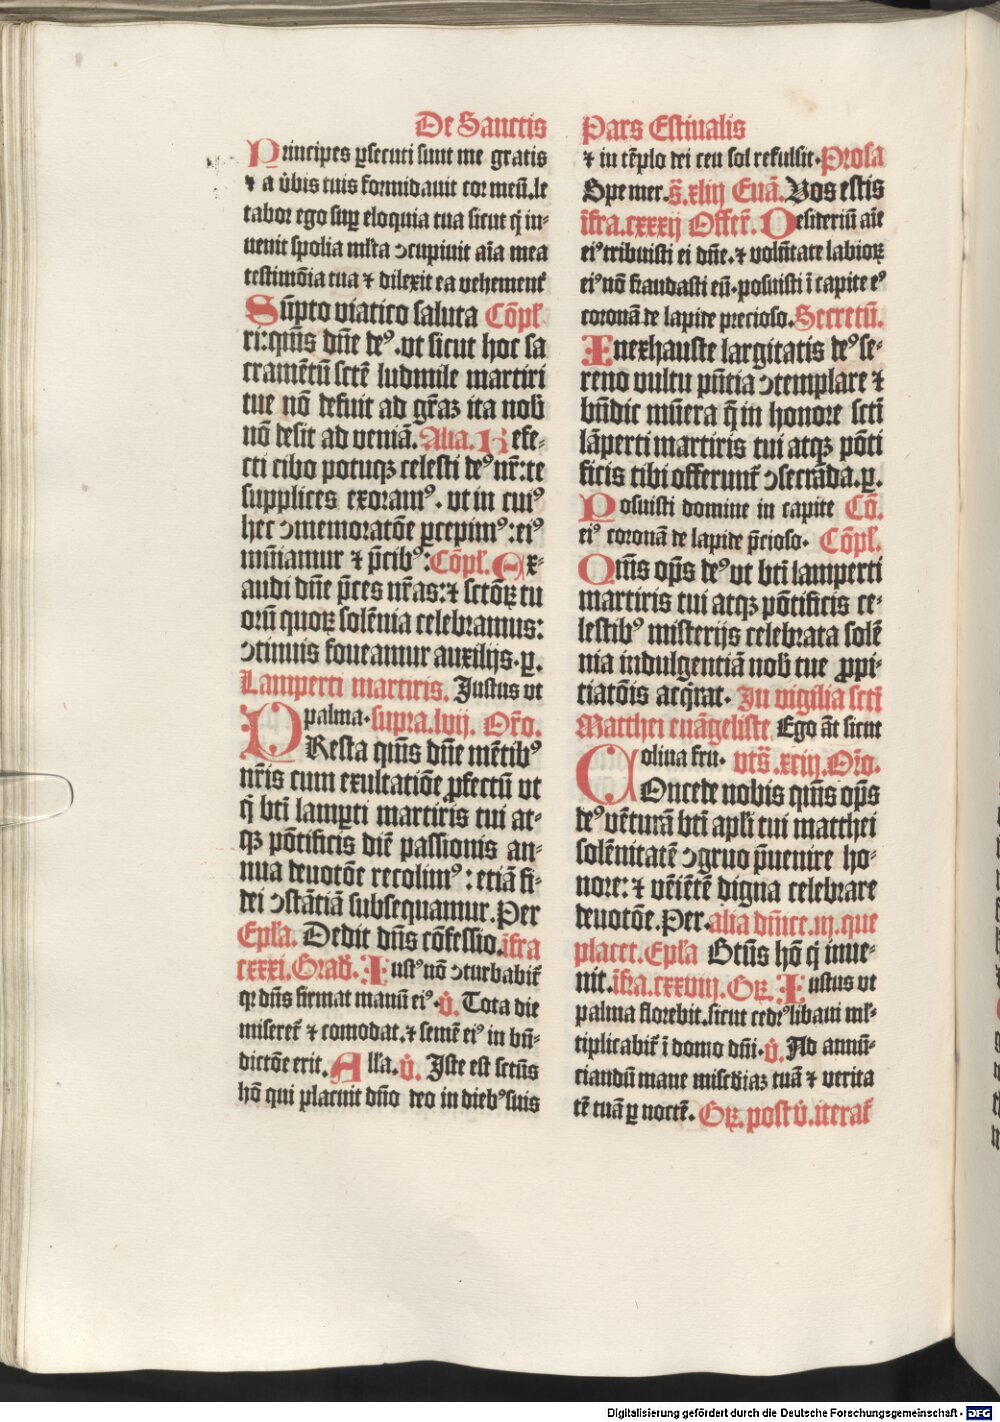 De Sanctis
Principes ꝑsecuti sunt me gratis
⁊ a v̓bis tuis formidauit cor meū.le
tabor ego suꝑ eloquia tua sicut q̄ in-
uenit spolia ml̓ta ↄcupiuit aīa mea
testimōia tua ⁊ dilexit ea vehement̄
Sūpto viatico saluta Cōpl̄.
ri:qm̄s dn̄e deꝰ.vt sicut hoc sa
cramētū sctē ludmile martiri
tue nō defuit ad gr̄aꝫ ita nob̄
nō desit ad veniā. Alia. Refe-
cti cibo potuqꝫ celesti deꝰ nr̄:te
supplices exoramꝰ. vt in cuiꝰ
hec ↄmemoratōe ꝑcepimꝰ:eiꝰ
mūiamur ⁊ p̄cibꝰ: Cōpl̄. Ex-
audi dn̄e p̄ces nr̄as:⁊ sctōꝝ tu
orū quoꝝ solēnia celebramus:
ↄtinuis foueamur auxilijs.ꝑ.
Lamperti martiris. Justus vt
palma. supra.lvij. Or̄o.
PResta qm̄s dn̄e mētibꝰ
nr̄is cum exultatiōe ꝓfectū vt
q̄ bt̄i lamꝑti martiris tui at-
qꝫ pōtificis diē passionis an-
nua deuotōe recolimꝰ: etiā fi-
dei ↄstātiā subsequamur. Per
Epl̄a. Dedit dn̄s cōfessio. īfra
cxxxi. Grad̄. Iustꝰ nō ↄturbabit̄
qꝛ dn̄s firmat manū eiꝰ. v̓. Tota die
miseret̄ ⁊ comodat.⁊ semē eiꝰ in bn̄-
dictōe erit. All̄a. v̓. Iste est sctūs
hō qui placuit dn̄o deo in diebꝰ suis
Pars Estiualis
⁊ in tēplo dei ceu sol refulsit. Prosa
Spe mer. s̄.xliij Euā. Vos estis
īfra.cxxxij Offer̄. Desideriū aīe
eiꝰ tribuisti ei dn̄e.⁊ volūtate labioꝝ
eiꝰ nō fraudasti eū.posuisti ī capite eꝰ
coronā de lapide precioso. Secretū.
Inexhauste largitatis deꝰ se-
reno vultu pn̄tia ↄtemplare ⁊
bn̄dic mūera q̄ in honore scti
lāperti martiris tui atqꝫ pōti
ficis tibi offerunt̄ ↄsecrāda.ꝑ.
Posuisti domine in capite Cō.
eiꝰ coronā de lapide p̄cioso. Cōpl̄.
Qm̄s op̄s deꝰ vt bt̄i lamperti
martiris tui atqꝫ pōtificis ce-
lestibꝰ misterijs celebrata solē
nia indulgentiā nob̄ tue ꝓpi-
tiatōis acq̄rat. In vigilia scti
Matthei euāgeliste. Ego āt sicut
oliua fru. vts̄.xciij. Or̄o.
COncede nobis qm̄s op̄s
deꝰ vēturā bt̄i apl̄i tui matthei
solēnitatē ↄgruo p̄uenire ho-
nore: ⁊ vēiētē digna celebrare
deuotōe. Per. alia dn̄ice.iij.que
placet. Epl̄a Btūs hō q̄ inue-
nit. īfra.cxxviij. Gꝝ. Iustus vt
palma florebit.sicut cedrꝰ libani ml̓-
tiplicabit̄ ī domo dn̄i. v̓. Ad annū-
ciandū mane misc̄diaꝫ tuā ⁊ verita
tē tuā ꝑ noctē. Gꝝ. post v̓. iterat̄
Digitalisierung gefördert durch die Deutsche Forschungsgemeinschaft - DFG